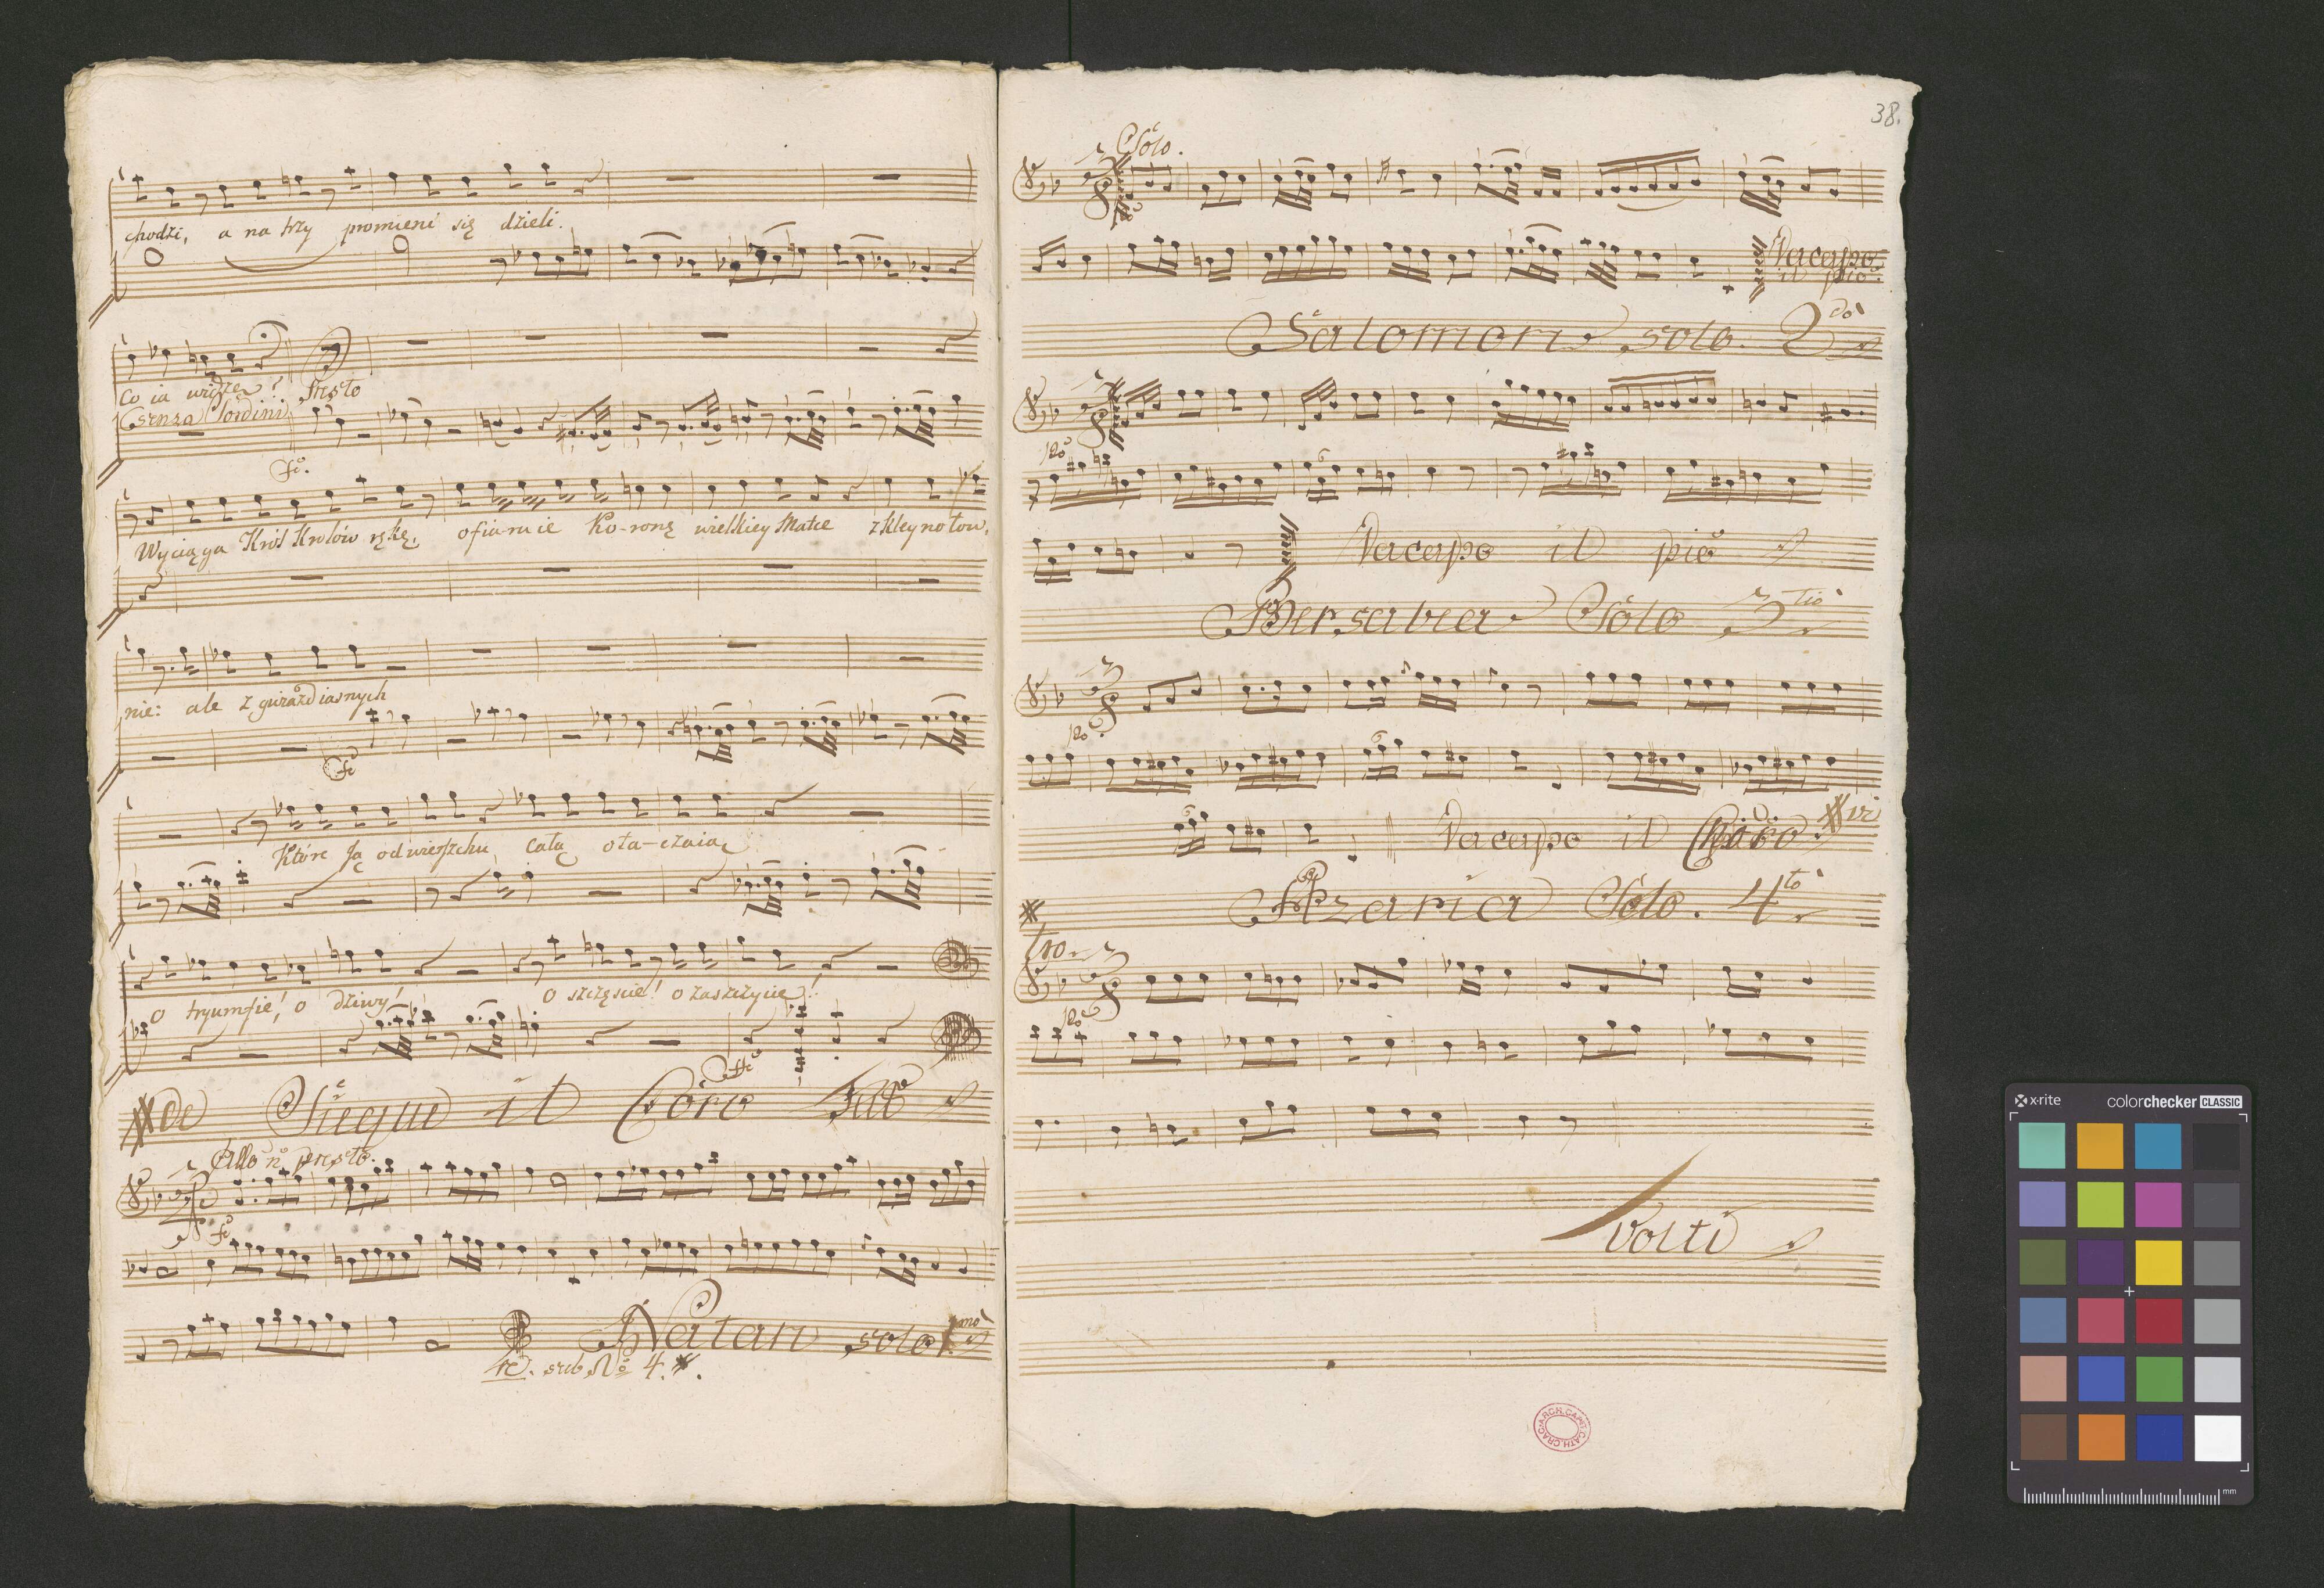 chodzi, a na trzy promieni się dzieli.
Co ia widzę? Presto
Senza Sordini
fe.
Wyciąga Król Królów rękę, ofiaruie Ko-ronę wielkiey Matce z kleynotow,
nie: ale z gwiazd iasnych
fe
Które Ją odwierzchu całą ota-czaią
O tryumfie! o dziwy! O szczęscie! o zaszczycie!
Siegue il Coro
Allo nō presto.
fe
Natan solo 1mo
sub No 4.
38.
Solo.
po
Dacapo
il pio
Salomon solo. 2do
po
Dacapo il pio
Bersabea Solo 3tio
po
6
6
Dacapo il
Azaria Solo. 4to
po
Volti
ARCH. CAPIT. CATH. CRAC.
x·rite
colorchecker CLASSIC
mm